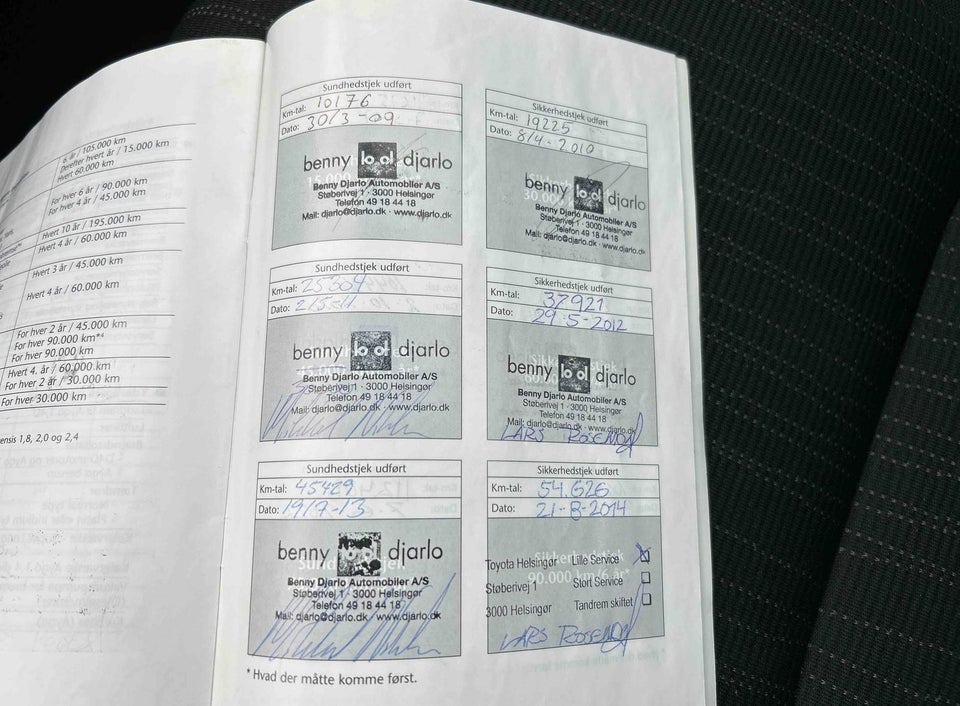 6. år / 105.000 km
Derefter hvert år / 15.000 km
Hvert 60.000 km
For hver 6 år / 90.000 km
For hver 4 år / 45.000 km
Hvert 10 år / 195.000 km
Hvert 4 år / 60.000 km
Hvert 3 år / 45.000 km
Hvert 4 år / 60.000 km
For hver 2 år / 45.000 km
For hver 90.000 km*⁴
For hver 90.000 km
Hvert 4. år / 60.000 km
For hver 2 år / 30.000 km
For hver 30.000 km
ensis 1,8, 2,0 og 2,4
Sundhedstjek udført
Km-tal: 10176
Dato: 30/3-09
benny djarlo
Benny Djarlo Automobiler A/S
Støberivej 1 · 3000 Helsingør
Telefon 49 18 44 18
Mail: djarlo@djarlo.dk · www.djarlo.dk
Sikkerhedstjek udført
Km-tal: 19225
Dato: 8/4-2010
benny djarlo
Benny Djarlo Automobiler A/S
Støberivej 1 · 3000 Helsingør
Telefon 49 18 44 18
Mail: djarlo@djarlo.dk · www.djarlo.dk
Sundhedstjek udført
Km-tal: 25304
Dato:
benny djarlo
Benny Djarlo Automobiler A/S
Støberivej 1 · 3000 Helsingør
Telefon 49 18 44 18
Mail: djarlo@djarlo.dk · www.djarlo.dk
Sikkerhedstjek udført
Km-tal: 37921
Dato: 29-5-2012
benny djarlo
Benny Djarlo Automobiler A/S
Støberivej 1 · 3000 Helsingør
Telefon 49 18 44 18
Mail: djarlo@djarlo.dk · www.djarlo.dk
LARS ROSENDAL
Sundhedstjek udført
Km-tal: 45429
Dato: 19/7-13
benny djarlo
Benny Djarlo Automobiler A/S
Støberivej 1 · 3000 Helsingør
Telefon 49 18 44 18
Mail: djarlo@djarlo.dk · www.djarlo.dk
Sikkerhedstjek udført
Km-tal: 54.626
Dato: 21-8-2014
Sikkerhedstjek
90.000 km/6 år*
Toyota Helsingør Lille Service
Støberivej 1 Stort Service
3000 Helsingør Tandrem skiftet
LARS ROSENDAL
* Hvad der måtte komme først.